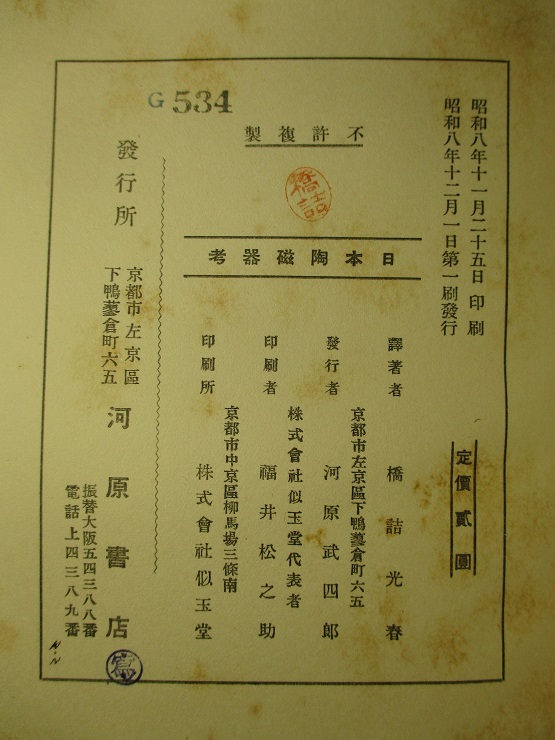 G 534
昭和八年十一月二十五日印刷
昭和八年十二月一日第一刷發行
定價貳圓
不許複製
橋詰
日本陶磁器考
譯著者 橋詰光春
京都市左京區下鴨蓼倉町六五
發行者 河原武四郎
株式會社似玉堂代表者
印刷者 福井松之助
京都市中京區柳馬場三條南
印刷所 株式會社似玉堂
發行所
京都市左京區
下鴨蓼倉町六五
河原書店
振替大阪五四三八八番
電話上四三八九番
寫
N.N